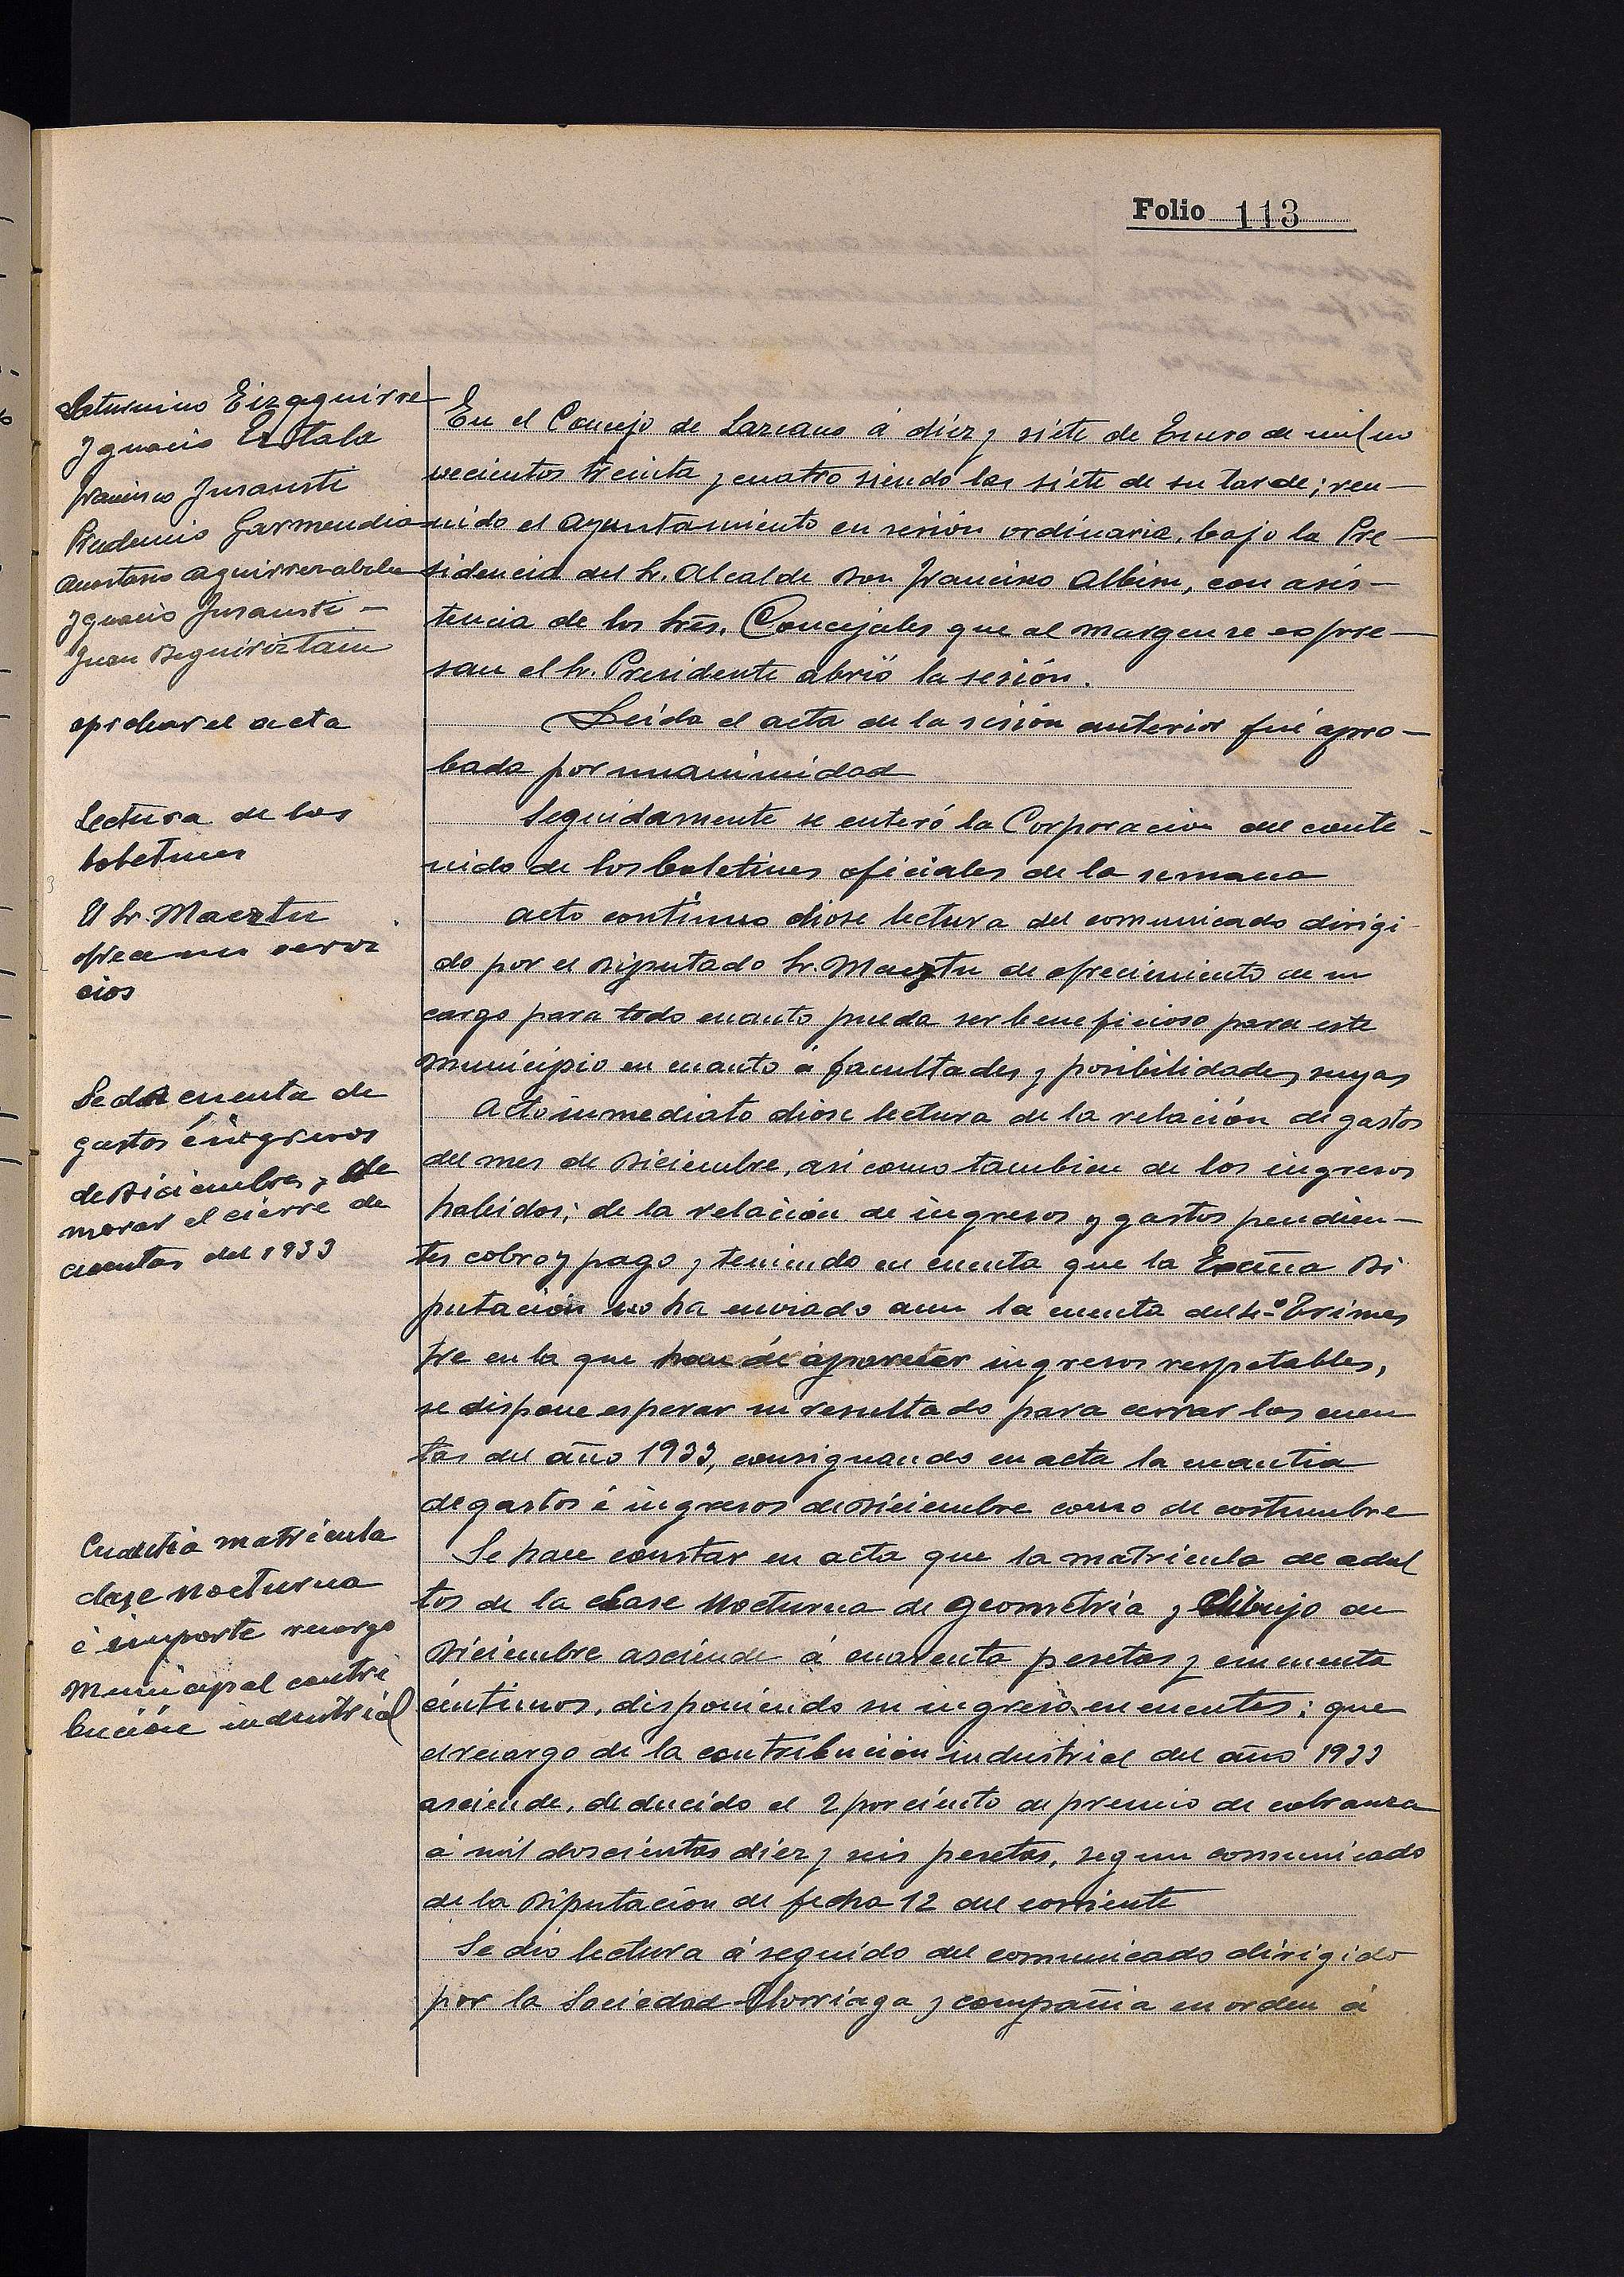 Folio 113
Saturnino Eizaguirre
Ygnacio Estala
Francisco Jnsausti
Prudencio Garmendia
Anastasio Aguirrezabala
Ygnacio Jnsausti -
Juan Beguiriztain
aprobar el acta
Lectura de los
boletines
El Sr. Maeztu
ofrece sus servi
cios
Se da cuenta de
gastos é ingresos
de Diciembre, y de
morar el cierre de
cuentas del 1933
Cuantia matrícula
clase nocturna
é importe recargo
municipal contri
bución industrial
En el Concejo de Lazcano á diez y siete de Enero de mil no
vecientos treinta y cuatro siendo las siete de su tarde; reu-
nido el Ayuntamiento en sesión ordinaria, bajo la Pre-
sidencia del Sr. Alcalde Don Francisco Albisu, con asis-
tencia de los Sres. Concejales que al margen se expre-
san el Sr. Presidente abrió la sesión.
Leida el acta de la sesión anterior fué apro-
bada por unanimidad
Seguidamente se enteró la Corporación del conte-
nido de los boletines oficiales de la semana
Acto continuo diose lectura del comunicado dirigi
do por el Diputado Sr. Maeztu de ofrecimiento de su
cargo para todo cuanto pueda ser beneficioso para este
municipio en cuanto á facultades y posibilidades suyas
Acto inmediato diose lectura de la relación de gastos
del mes de Diciembre, asi como tambien de los ingresos
habidos; de la relación de ingresos y gastos pendien-
tes cobro y pago y teniendo en cuenta que la Excma Di
putación no ha enviado aun la cuenta del 4º Trimes
tre en la que han de aparecer ingresos respetables,
se dispone esperar su resultado para cerrar las cuen
tas del año 1933, consignando en acta la cuantia
de gastos é ingresos de Diciembre como de costumbre
Se hace constar en acta que la matrícula de adul
tos de la clase nocturna de geometría y dibujo de
Diciembre asciende á cuarenta pesetas y cincuenta
céntimos, disponiendo su ingreso en cuentas; que
el recargo de la contribución industrial del año 1933
asciende, deducido el 2 por ciento de premio de cobranza
á mil doscientas diez y seis pesetas, segun comunicado
de la Diputación de fecha 12 del corriente
Se dió lectura á seguido del comunicado dirigido
por la Sociedad Elorriaga y compañia en orden á